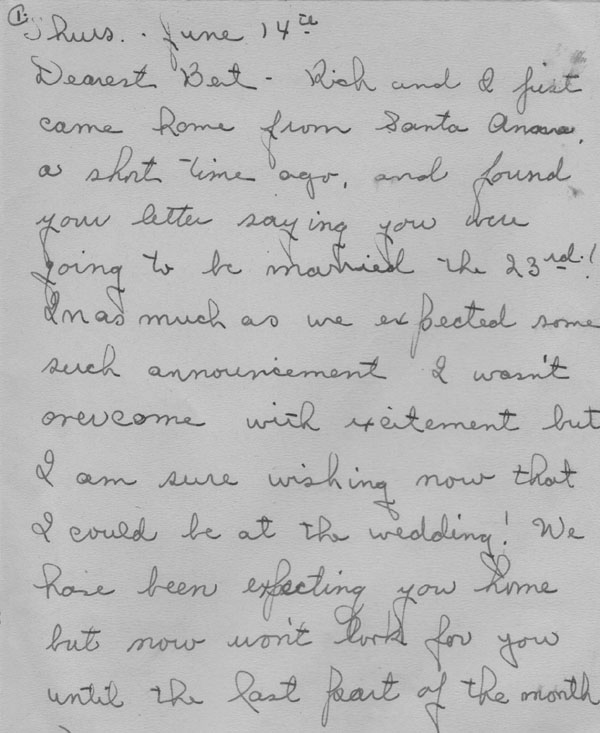 1.
Thurs. June 14th
Dearest Bert - Rich and I just
came home from Santa Anna,
a short time ago, and found
your letter saying you were
going to be married the 23rd!
In as much as we expected some
such announcement I wasn't
overcome with excitement but
I am sure wishing now that
I could be at the wedding! We
have been expecting you home
but now won't look for you
until the last part of the month